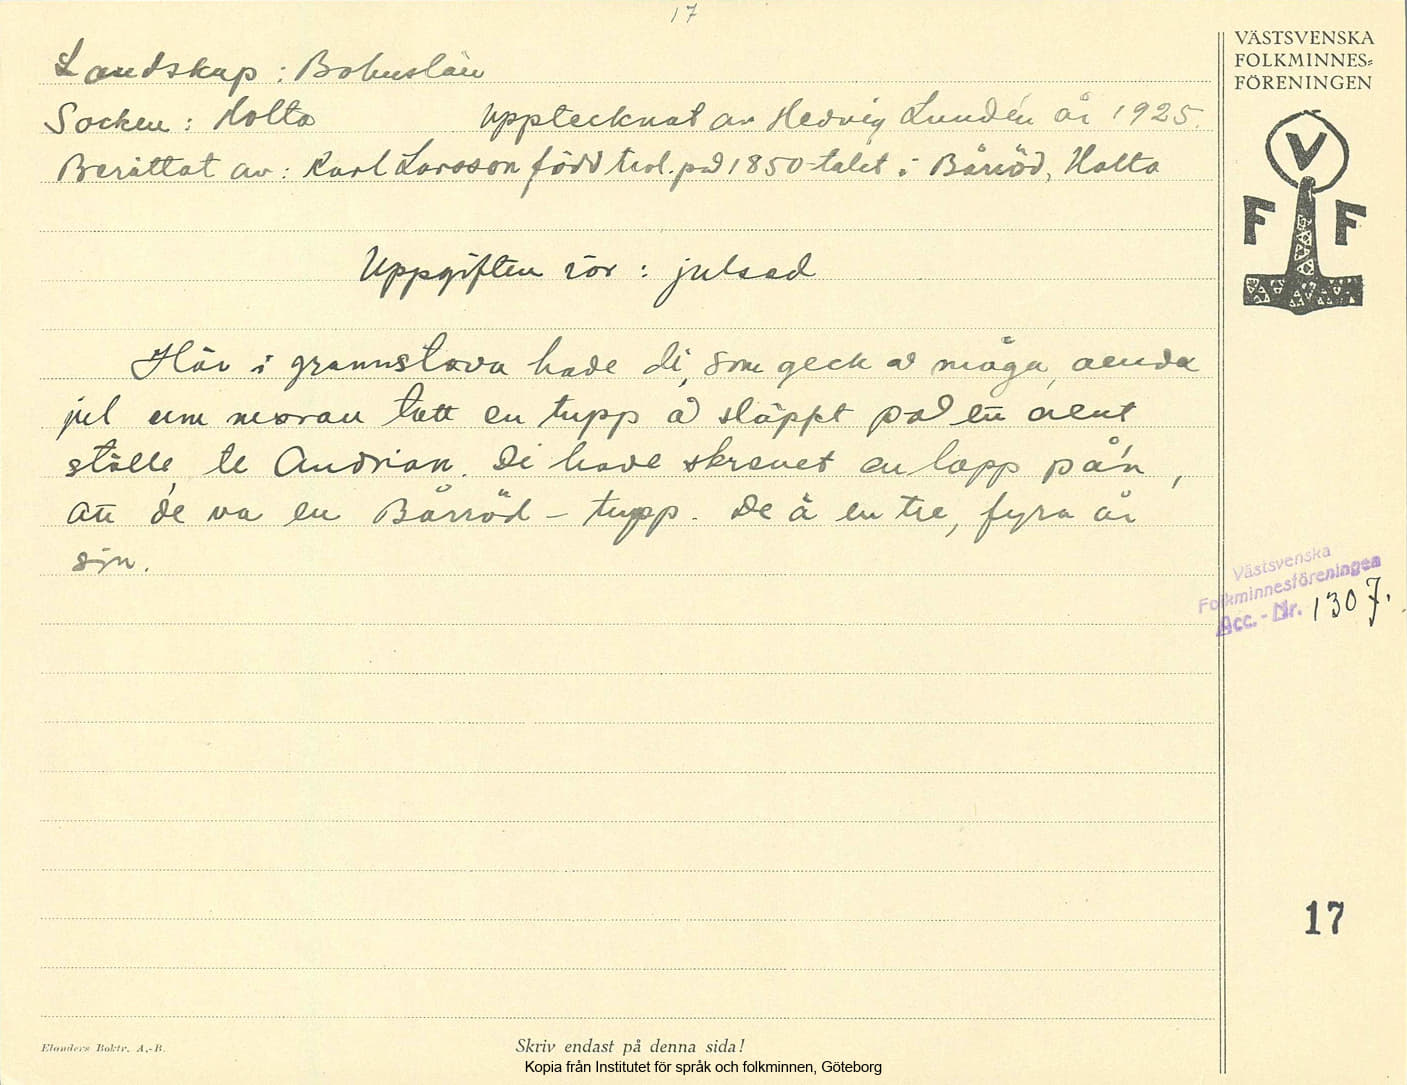 17
Landskap : Bohuslän
Socken : Holta Upptecknat av Hedvig Lundén år 1925.
Berättat av : Karl Larsson född trol. på 1850-talet i Bärröd, Holta
Uppgiften rör : julsed
Här i grannstava hade di, som geck å måga, aenda
jul um moran tatt en tupp å släppt på ett aent
ställe, te Andrian. Di hade skrevet en lapp på'n,
att de va en Bärröd - tupp. De ä en tre, fyra år
sin.
VÄSTSVENSKA
FOLKMINNES-
FÖRENINGEN
V
F F
Västsvenska
Folkminnesföreningen
Acc. - Nr. 1307.
17
Elanders Boktr. A.-B.
Skriv endast på denna sida!
Kopia från Institutet för språk och folkminnen, Göteborg